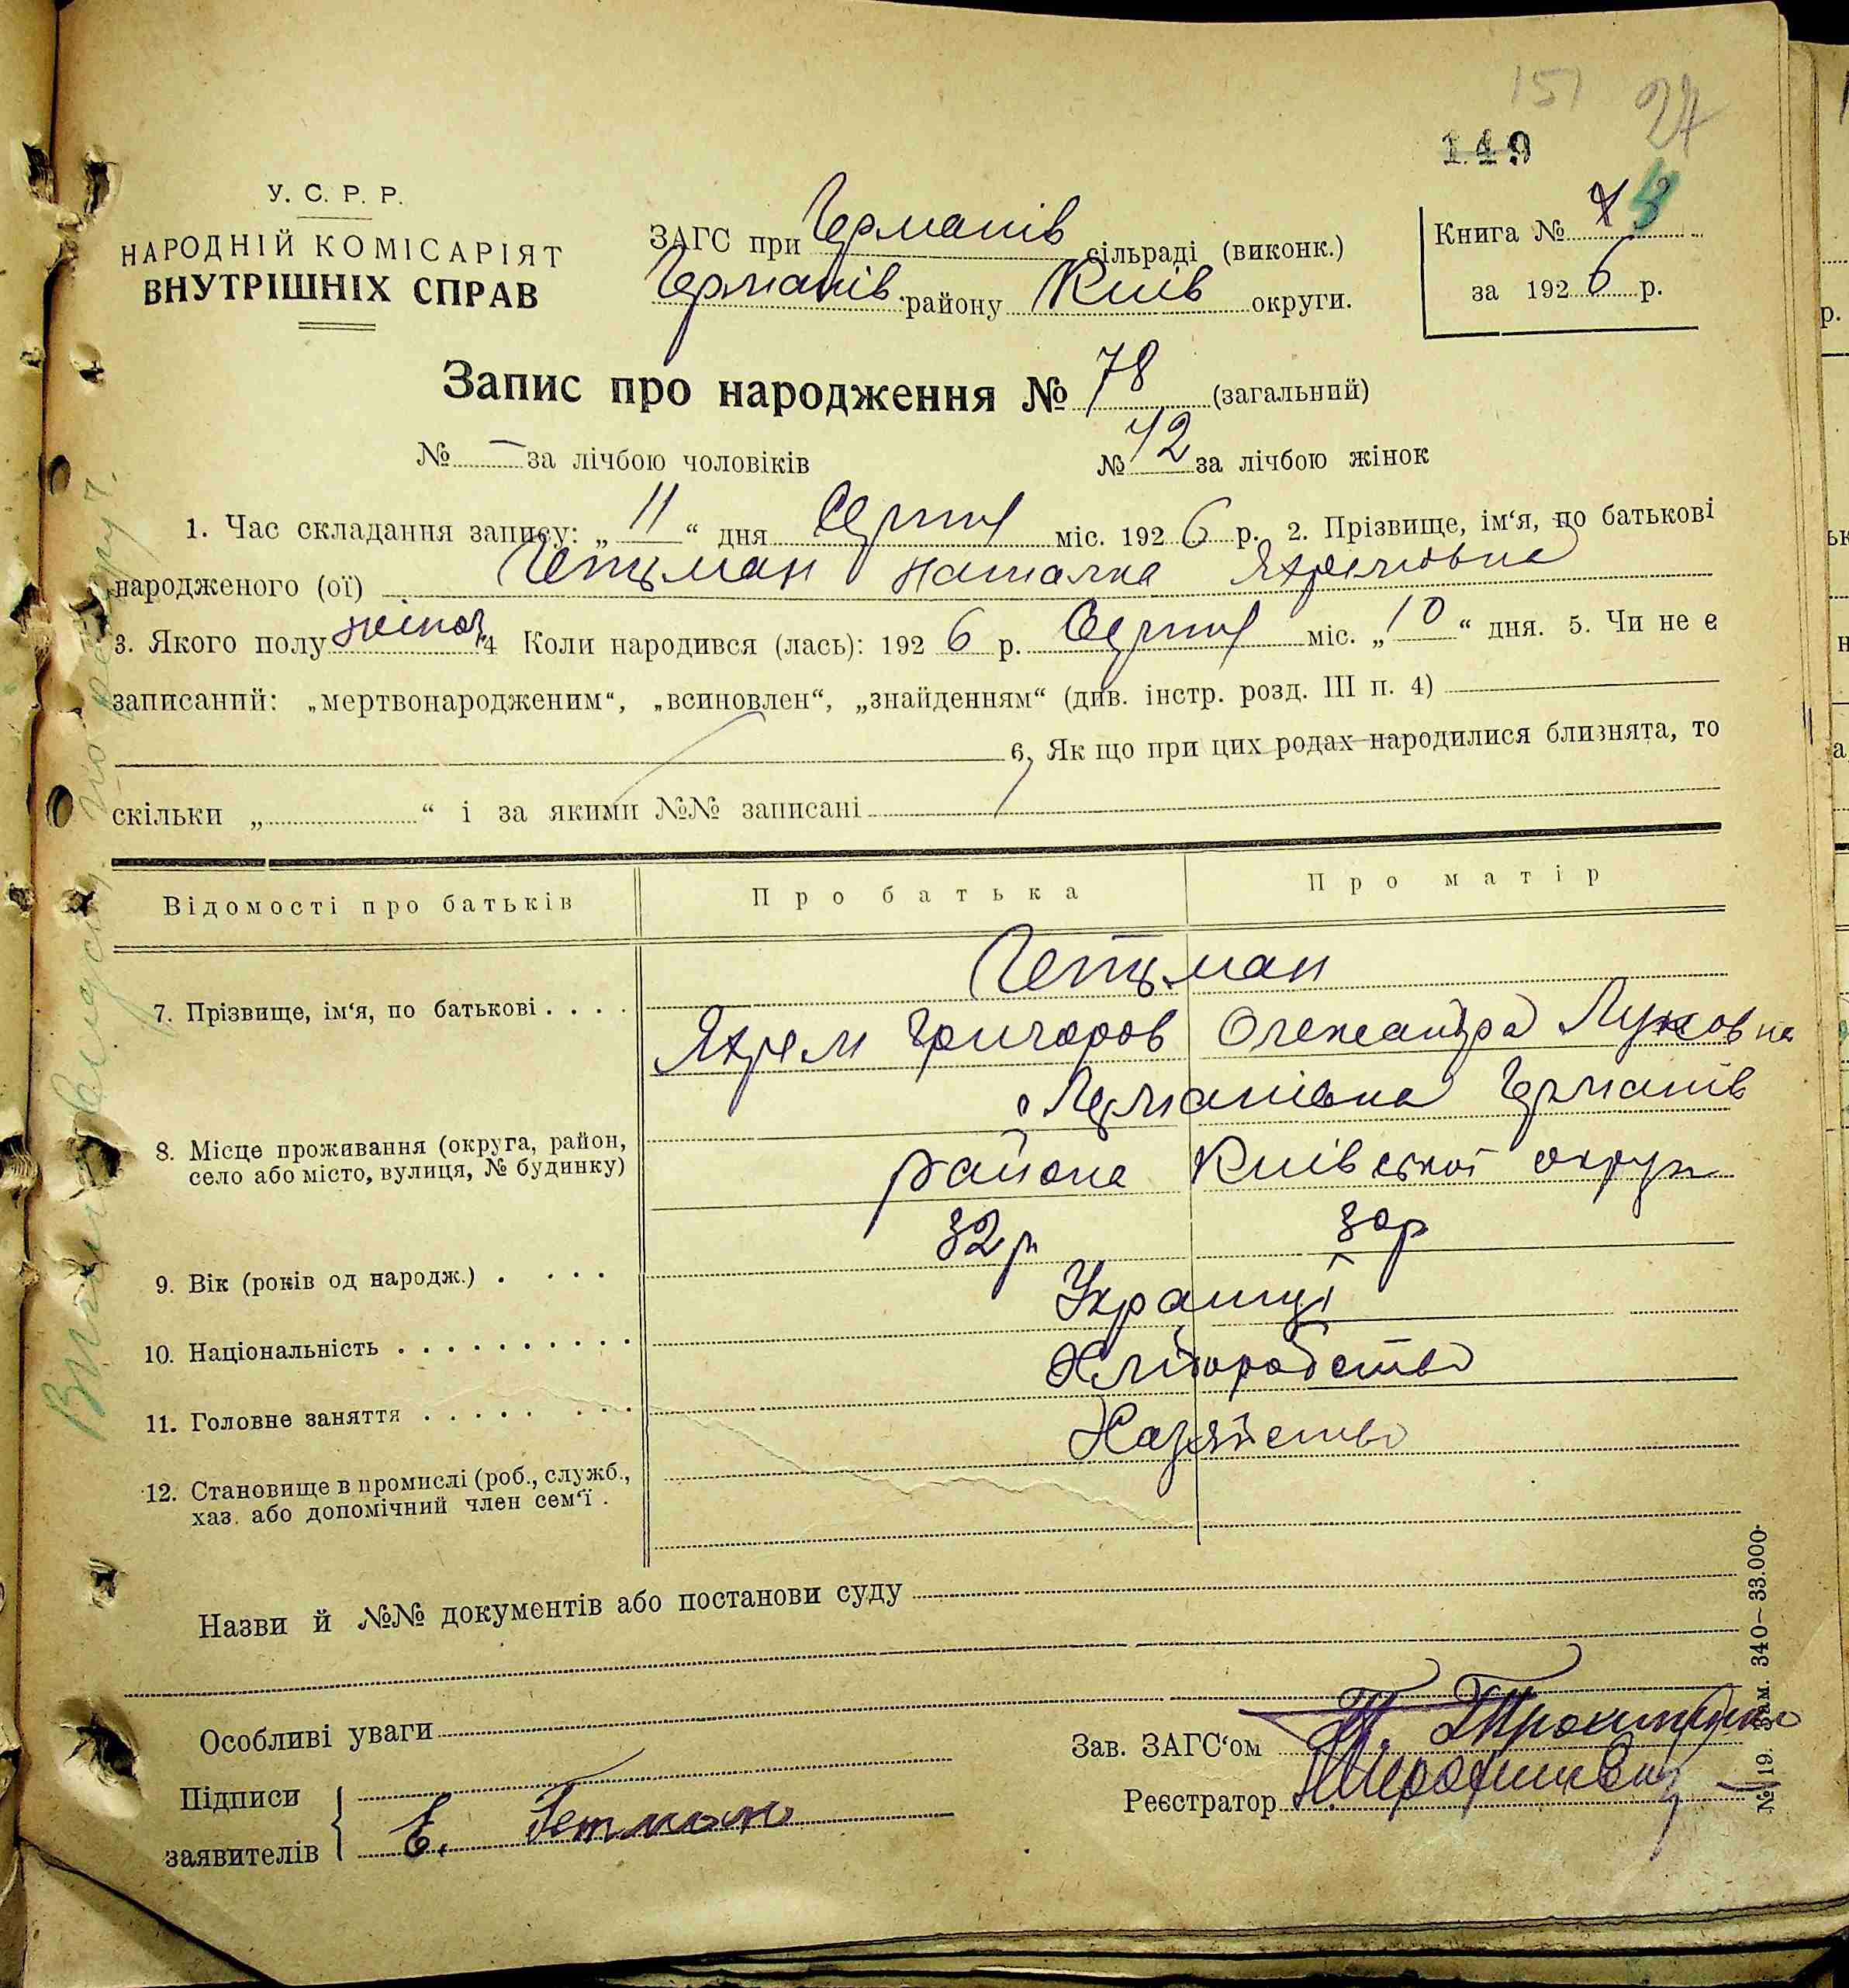 151 24
149
У. С. Р. Р.
НАРОДНІЙ КОМІСАРІЯТ
ВНУТРІШНІХ СПРАВ
ЗАГС при Германів сільраді (виконк.)
Германів району Київ округи.
Книга №
за 1926 р.
Запис про народження № 78 (загальний)
№ — за лічбою чоловіків № 42 за лічбою жінок
1. Час складання запису: „ 11 “ дня Серпня міс. 1926 р. 2. Прізвище, ім‘я, по батькові
народженого (ої) Гетьман Наталка Яхремовна
3. Якого полу жіноч. 4 Коли народився (лась): 1926 р. Серпня міс. „ 10 “ дня. 5. Чи не є
записаний: „мертвонародженим“, „всиновлен“, „знайденням“ (див. інстр. розд. III п. 4)
6, Як що при цих родах народилися близнята, то
скільки „ “ і за якими №№ записані
Відомості про батьків Про батька Про матір
Гетьман
7. Прізвище, ім‘я, по батькові . . . .
Яхрем Григоров Олександра Луковна
Германівка Германів
8. Місце проживання (округа, район,
село або місто, вулиця, № будинку)
района Київської округи
32 р 30 р
9. Вік (років од народж.) . . . .
Українці
10. Національність . . . . . . . . . .
Хліборобство
11. Головне заняття . . . . . . . .
Хазяйство
12. Становище в промислі (роб., служб.,
хаз. або допомічний член сем‘ї .
Назви й №№ документів або постанови суду
Особливі уваги
Зав. ЗАГС‘ом
Підписи
заявителів
Е. Гетман
Реєстратор
№ 19. Зам. 340—33.000.